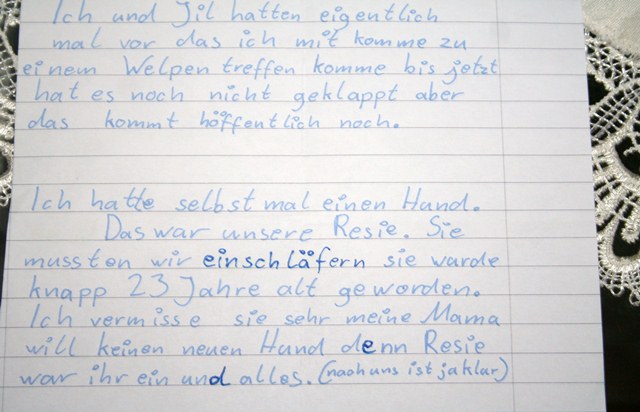 Ich und Jil hatten eigentlich
mal vor das ich mit komme zu
einem Welpen treffen komme bis jetzt
hat es noch nicht geklappt aber
das kommt höffentlich noch.
Ich hatte selbst mal einen Hund.
Das war unsere Resie. Sie
mussten wir einschläfern sie wurde
knapp 23 Jahre alt geworden.
Ich vermisse sie sehr meine Mama
will keinen neuen Hund denn Resie
war ihr ein und alles. (nach uns ist ja klar)